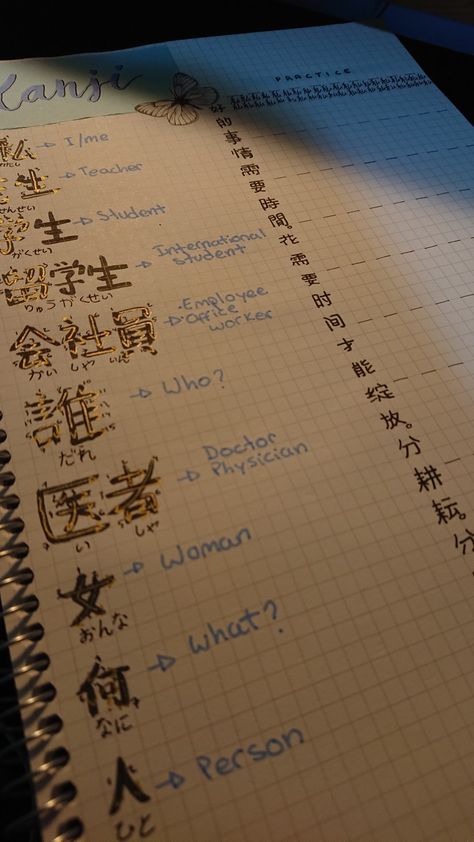 Kanji
PRACTICE
私 I/me
先生 Teacher
せんせい
学生 Student
がくせい
留学生 International Student
りゅうがくせい
会社員 .Employee
.Office worker
かい しゃ いん
誰 Who?
だれ
医者 Doctor
Physician
い しゃ
女 Woman
おんな
何 What?
なに
人 Person
ひと
好的事情需要時間。花需要时间才能绽放。分耕耘。分